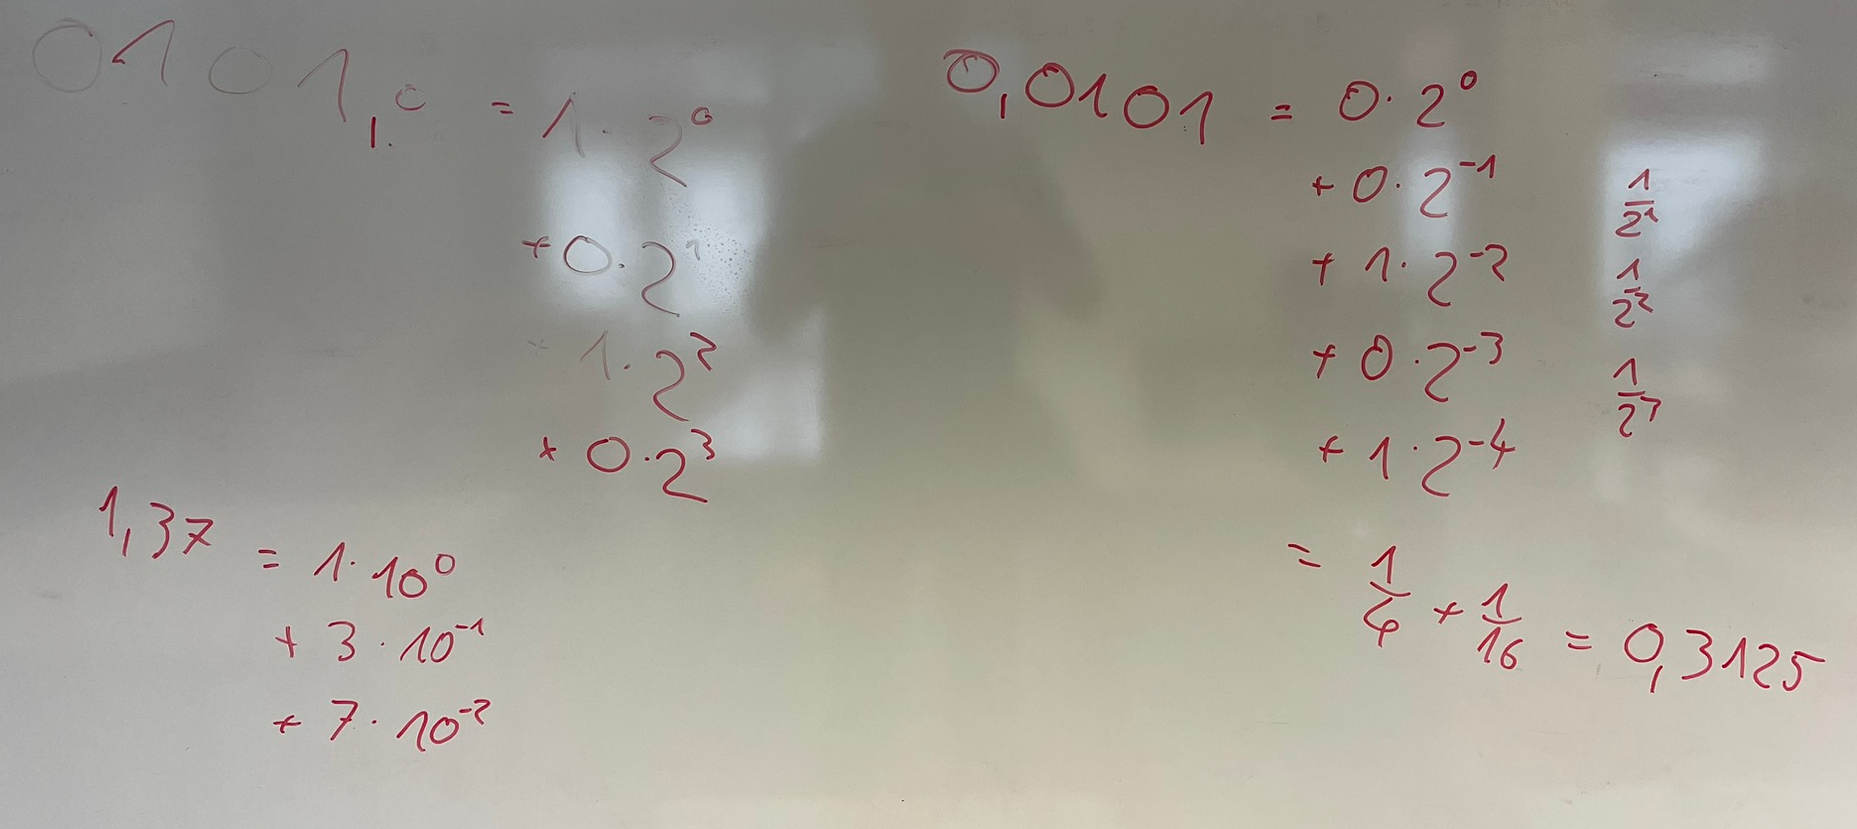 0101,0 = 1·2⁰
+0·2¹
+ 1·2²
+ 0·2³
1,37 = 1·10⁰
+ 3·10⁻¹
+ 7·10⁻²
0,0101 = 0·2⁰
+ 0·2⁻¹
+ 1·2⁻²
+ 0·2⁻³
+ 1·2⁻⁴
= 1/4 + 1/16 = 0,3125
1/2¹
1/2²
1/2³